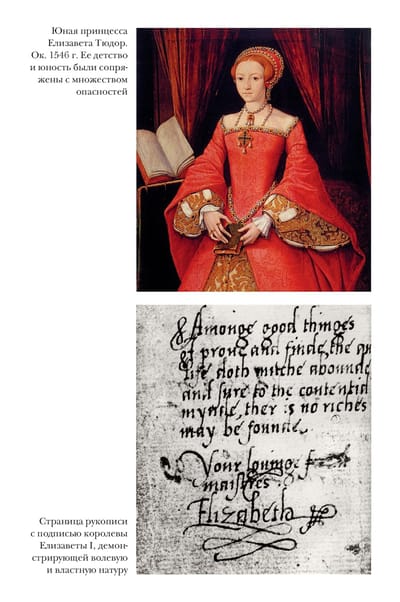 Юная принцесса
Елизавета Тюдор.
Ок. 1546 г. Ее детство
и юность были сопря-
жены с множеством
опасностей
& Amonge good thinges
I prove and finde, the
life doth mutche abounde
and sure to the contentid
mynde, ther is no riches
may be founde.
Your lovinge
maistres
Elizabeth
Страница рукописи
с подписью королевы
Елизаветы I, демон-
стрирующей волевую
и властную натуру